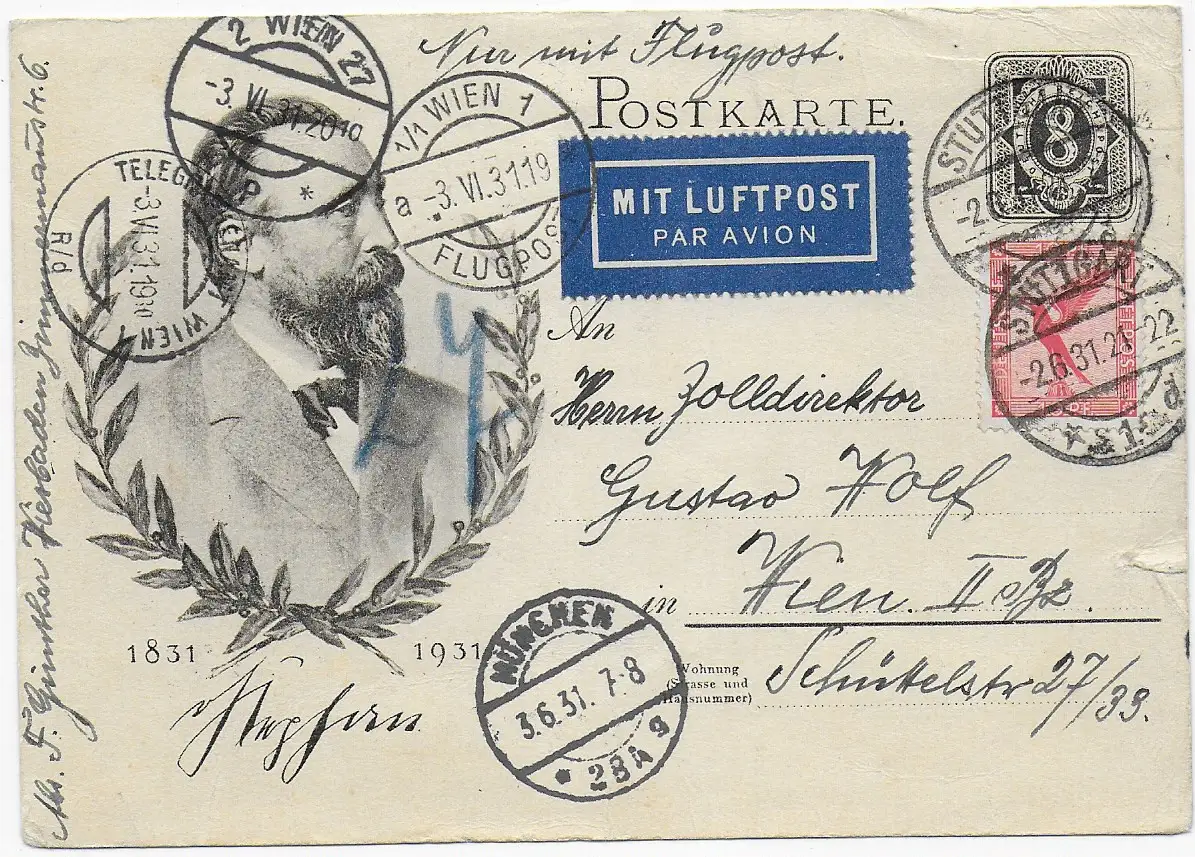 Nur mit Flugpost.
POSTKARTE.
MIT LUFTPOST
PAR AVION
An
Herrn Zolldirektor
Gustav Wolf
in Wien. II Bz.
Wohnung
(Strasse und
Hausnummer)
Schüttelstr 27/33.
1831 1931
Stephan
Abs. F. Günther Wiesbaden Zimmermannstr. 6.
2 WIEN 27
-3. VI. 31. 20
*
1/1 WIEN 1
a -3. VI. 31. 19
FLUGPOST
TELEGR
-3. VI. 31. 19
R/d
WIEN 1
MÜNCHEN
3.6.31. 7-8
* 28 A g
8
STUT
-2.
STUTTGART
-2.6.31. 21-22
* 1 d
PF